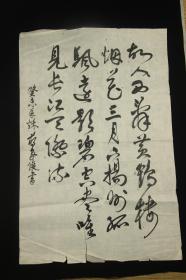 故人西辞黄鶴樓
烟花三月下揚州孤
帆遠影碧空尽唯
見長江天際流
癸未 秋 書